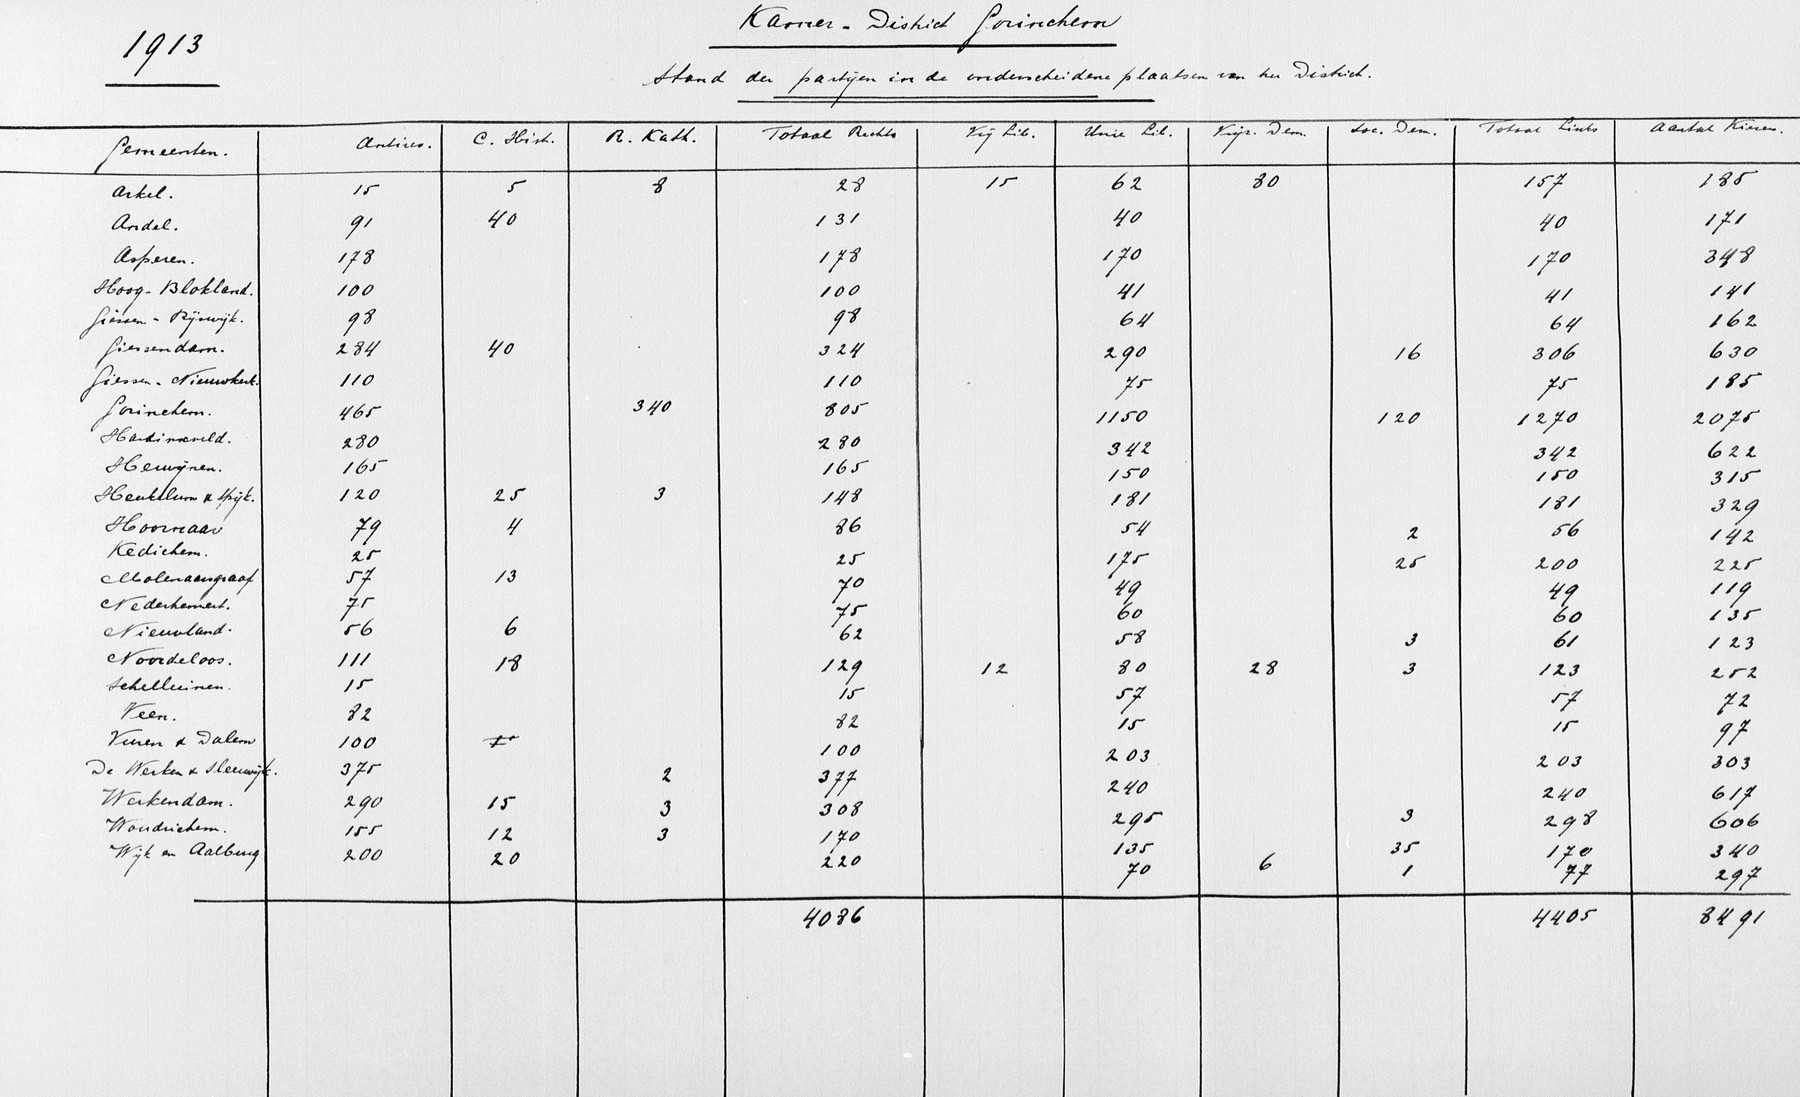 1913
Kamer - District Gorinchem
Stand der partijen in de onderscheidene plaatsen van het District.
Gemeenten. Antirev. C. Hist. R. Kath. Totaal Rechts Vrij Lib. Unie Lib. Vrijz. Dem. Soc. Dem. Totaal Links Aantal Kiezers.
Arkel. 15 5 8 28 15 62 80 157 185
Andel. 91 40 131 40 40 171
Asperen. 178 178 170 170 348
Hoog-Blokland. 100 100 41 41 141
Giessen-Rijswijk. 98 98 64 64 162
Giessendam. 284 40 324 290 16 306 630
Giessen-Nieuwkerk. 110 110 75 75 185
Gorinchem. 465 340 805 1150 120 1270 2075
Hardinxveld. 280 280 342 342 622
Herwijnen. 165 165 150 150 315
Heukelum & Spijk. 120 25 3 148 181 181 329
Hoornaar 79 4 86 54 2 56 142
Kedichem. 25 25 175 25 200 225
Molenaarsgraaf 57 13 70 49 49 119
Nederhemert. 75 75 60 60 135
Nieuwland. 56 6 62 58 3 61 123
Noordeloos. 111 18 129 12 80 28 3 123 252
Schelluinen. 15 15 57 57 72
Veen. 82 82 15 15 97
Vuren & Dalem 100 100 203 203 303
De Werken & Sleeuwijk. 375 2 377 240 240 617
Werkendam. 290 15 3 308 295 3 298 606
Woudrichem. 155 12 3 170 135 35 170 340
Wijk en Aalburg 200 20 220 70 6 1 77 297
4086 4405 8491